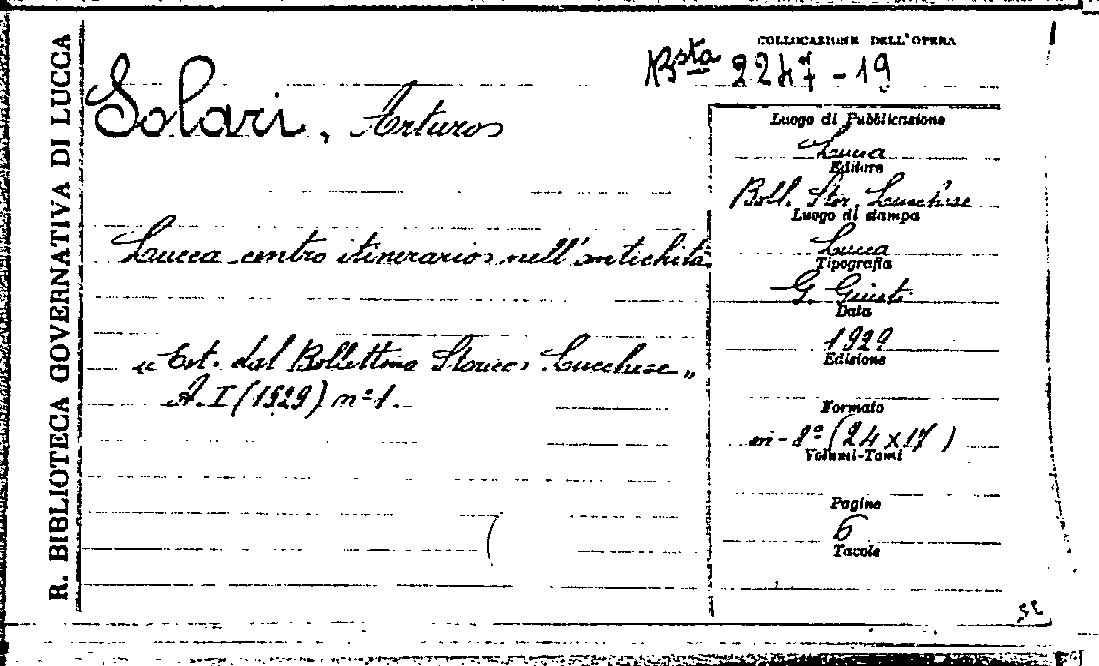 R. BIBLIOTECA GOVERNATIVA DI LUCCA
COLLOCAZIONE DELL'OPERA
Bsta 2247-19
Solari, Arturo
Lucca centro itinerario nell'antichità
"Est. dal Bollettino Storico Lucchese"
A. I (1929) n° 1.
Luogo di Pubblicazione
Lucca
Editore
Boll. Stor. Lucchese
Luogo di stampa
Lucca
Tipografia
G. Giusti
Data
1929
Edizione
Formato
in-8° (24x17)
Volumi-Tomi
Pagine
6
Tacole